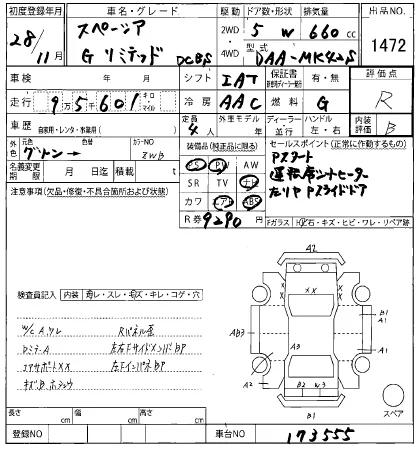 初度登録年月
28/11月
車名・グレード
スペーシア
G リミテッド DCBS
駆動 ドア数・形状 排気量
2WD 5 W 660 cc
4WD 型式 DAA-MK42S
出品NO.
1472
車検 年 月
シフト IAT
保証書 有・無
評価点
R
走行 9万5千601 キロ マイル
冷房 AAC
燃料 G
車歴 自家用・レンタ・
定員 4人
外車モデル 年
ディーラー 並行
ハンドル 左・右
内装評価 B
外色 元色 色替 カラーNO
グリトーン → ZWB
名義変更期限 月 日迄 積載 t
装備品(純正品に限る)
PS PW AW
SR TV ナビ
カワ エアB ABS
R券 9290 円
セールスポイント (正常に作動するもの)
Pスタート
運転席シートヒーター
左リヤPスライドドア
注意事項(欠品・修復・不具合箇所および状態)
Fガラス 石・キズ・ヒビ・ワレ・リペア跡
検査員記入 内装 ・スレ・・キレ・コゲ・穴
W/C A、サレ
DミラーA
エアサポートXX
キズB
Rパネル歪
左右FサイドメンバBP
左FインパネBP
A2
XX
AB3
B1
A1
A1
A3
XX
A2
B2 W3
B1
スペア
長さ cm 幅 cm 高さ cm
登録NO
車台NO 173555